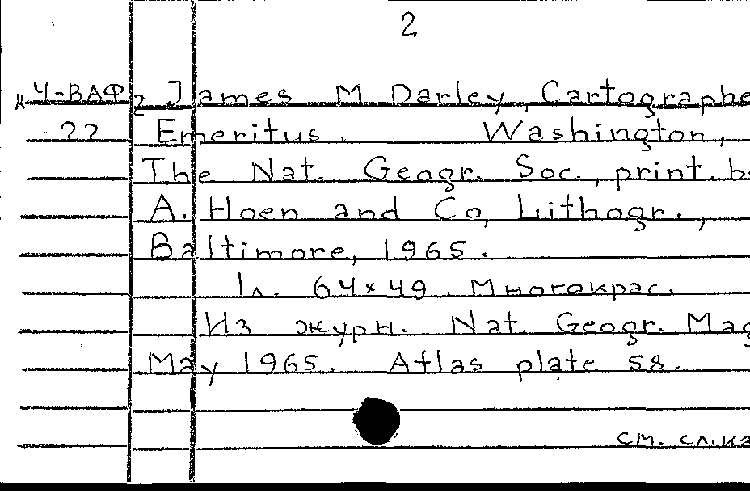 2
Ч-ВАФ2 James M Darley, Cartographe
22 Emeritus. Washington,
The Nat. Geogr. Soc., print. b
A. Hoen and Co, Lithogr.,
Baltimore, 1965.
1л. 64×49. Многокрас.
Из журн. Nat. Geogr. Mag
May 1965. Atlas plate 58.
см. сл. ка